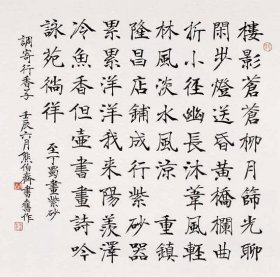 樓影蒼蒼柳月師光聊
閑步燈送昏黃橋欄曲
折小徑幽長沐葦風輕
林風淡水風涼 重鎮
隆昌店鋪成行紫砂器
累累洋洋我來陽羨澤
冷魚香但壺書畫詩吟
詠苑徜徉 至丁蜀畫紫砂
調寄行香子 壬辰六月熊伯齊書舊作